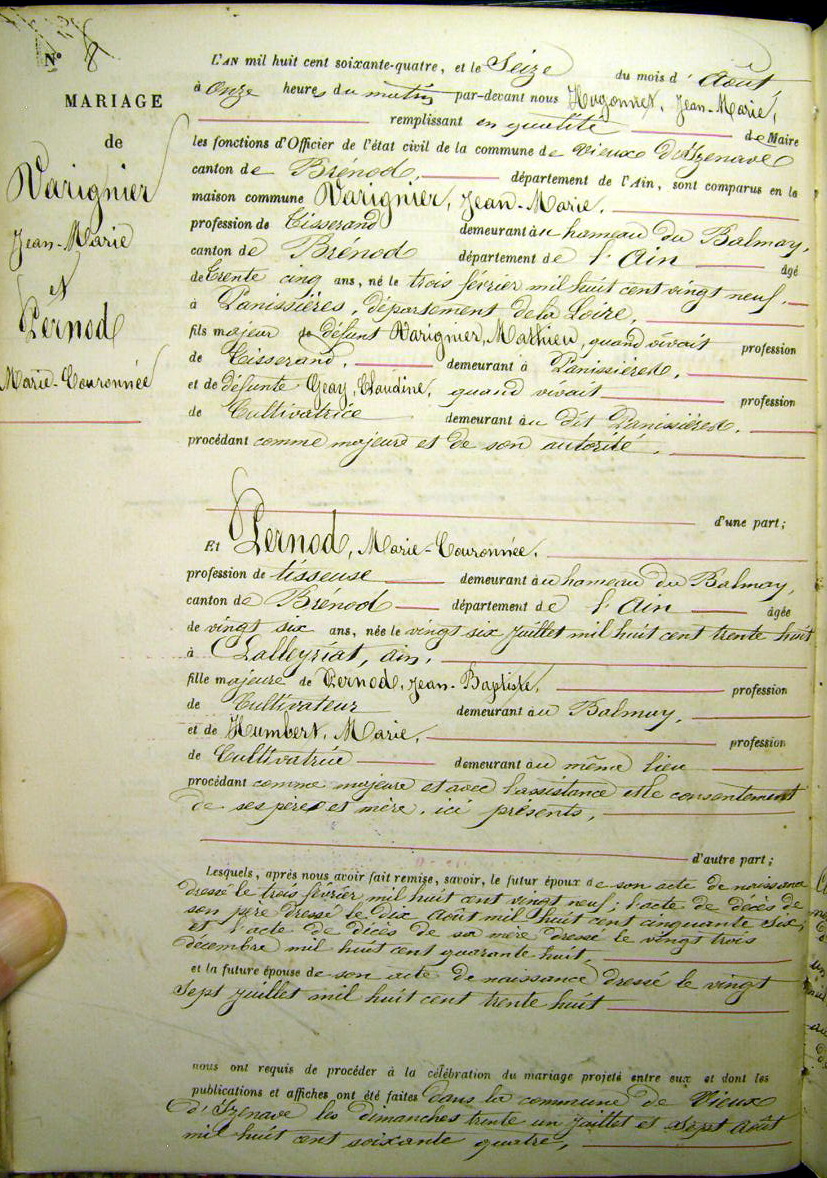 N° 8
MARIAGE
de
Varignier
Jean-Marie
et
Pernod
Marie-Couronnée
L'AN mil huit cent soixante-quatre, et le Seize du mois d'Août
à Onze heures du matin par-devant nous Hugonnet, Jean-Marie,
remplissant en qualité de Maire
les fonctions d'Officier de l'état civil de la commune de Vieux d'Izenave
canton de Brénod, département de l'Ain, sont comparus en la
maison commune Varignier, Jean-Marie,
profession de Tisserand demeurant au hameau du Balmay,
canton de Brénod département de l'Ain âgé
de trente cinq ans, né le trois février mil huit cent vingt neuf,
à Panissières, département de la Loire,
fils majeur de défunt Varignier, Mathieu, quand vivait profession
de Tisserand, demeurant à Panissières,
et de défunte Geay, Claudine, quand vivait profession
de Cultivatrice demeurant au dit Panissières,
procédant comme majeure et de son autorité,
d'une part;
Et Pernod, Marie-Couronnée,
profession de tisseuse demeurant au hameau du Balmay,
canton de Brénod département de l'Ain âgée
de vingt six ans, née le vingt six Juillet mil huit cent trente huit
à Lalleyriat, ain,
fille majeure de Pernod, Jean-Baptiste, profession
de Cultivateur demeurant au Balmay,
et de Humbert, Marie, profession
de Cultivatrice demeurant au même lieu
procédant comme majeure et avec l'assistance et le consentement
de ses père et mère, ici présents,
d'autre part;
Lesquels, après nous avoir fait remise, savoir, le futur époux de son acte de naissance
dressé le trois février mil huit cent vingt neuf; l'acte de décès de
son père dressé le dix Août mil huit cent cinquante six,
et l'acte de décès de sa mère dressé le vingt trois
décembre mil huit cent quarante huit,
et la future épouse de son acte de naissance dressé le vingt
Sept Juillet mil huit cent trente huit
nous ont requis de procéder à la célébration du mariage projeté entre eux et dont les
publications et affiches ont été faites dans la commune de Vieux
d'Izenave les dimanches trente un Juillet et Sept Août
mil huit cent soixante quatre,